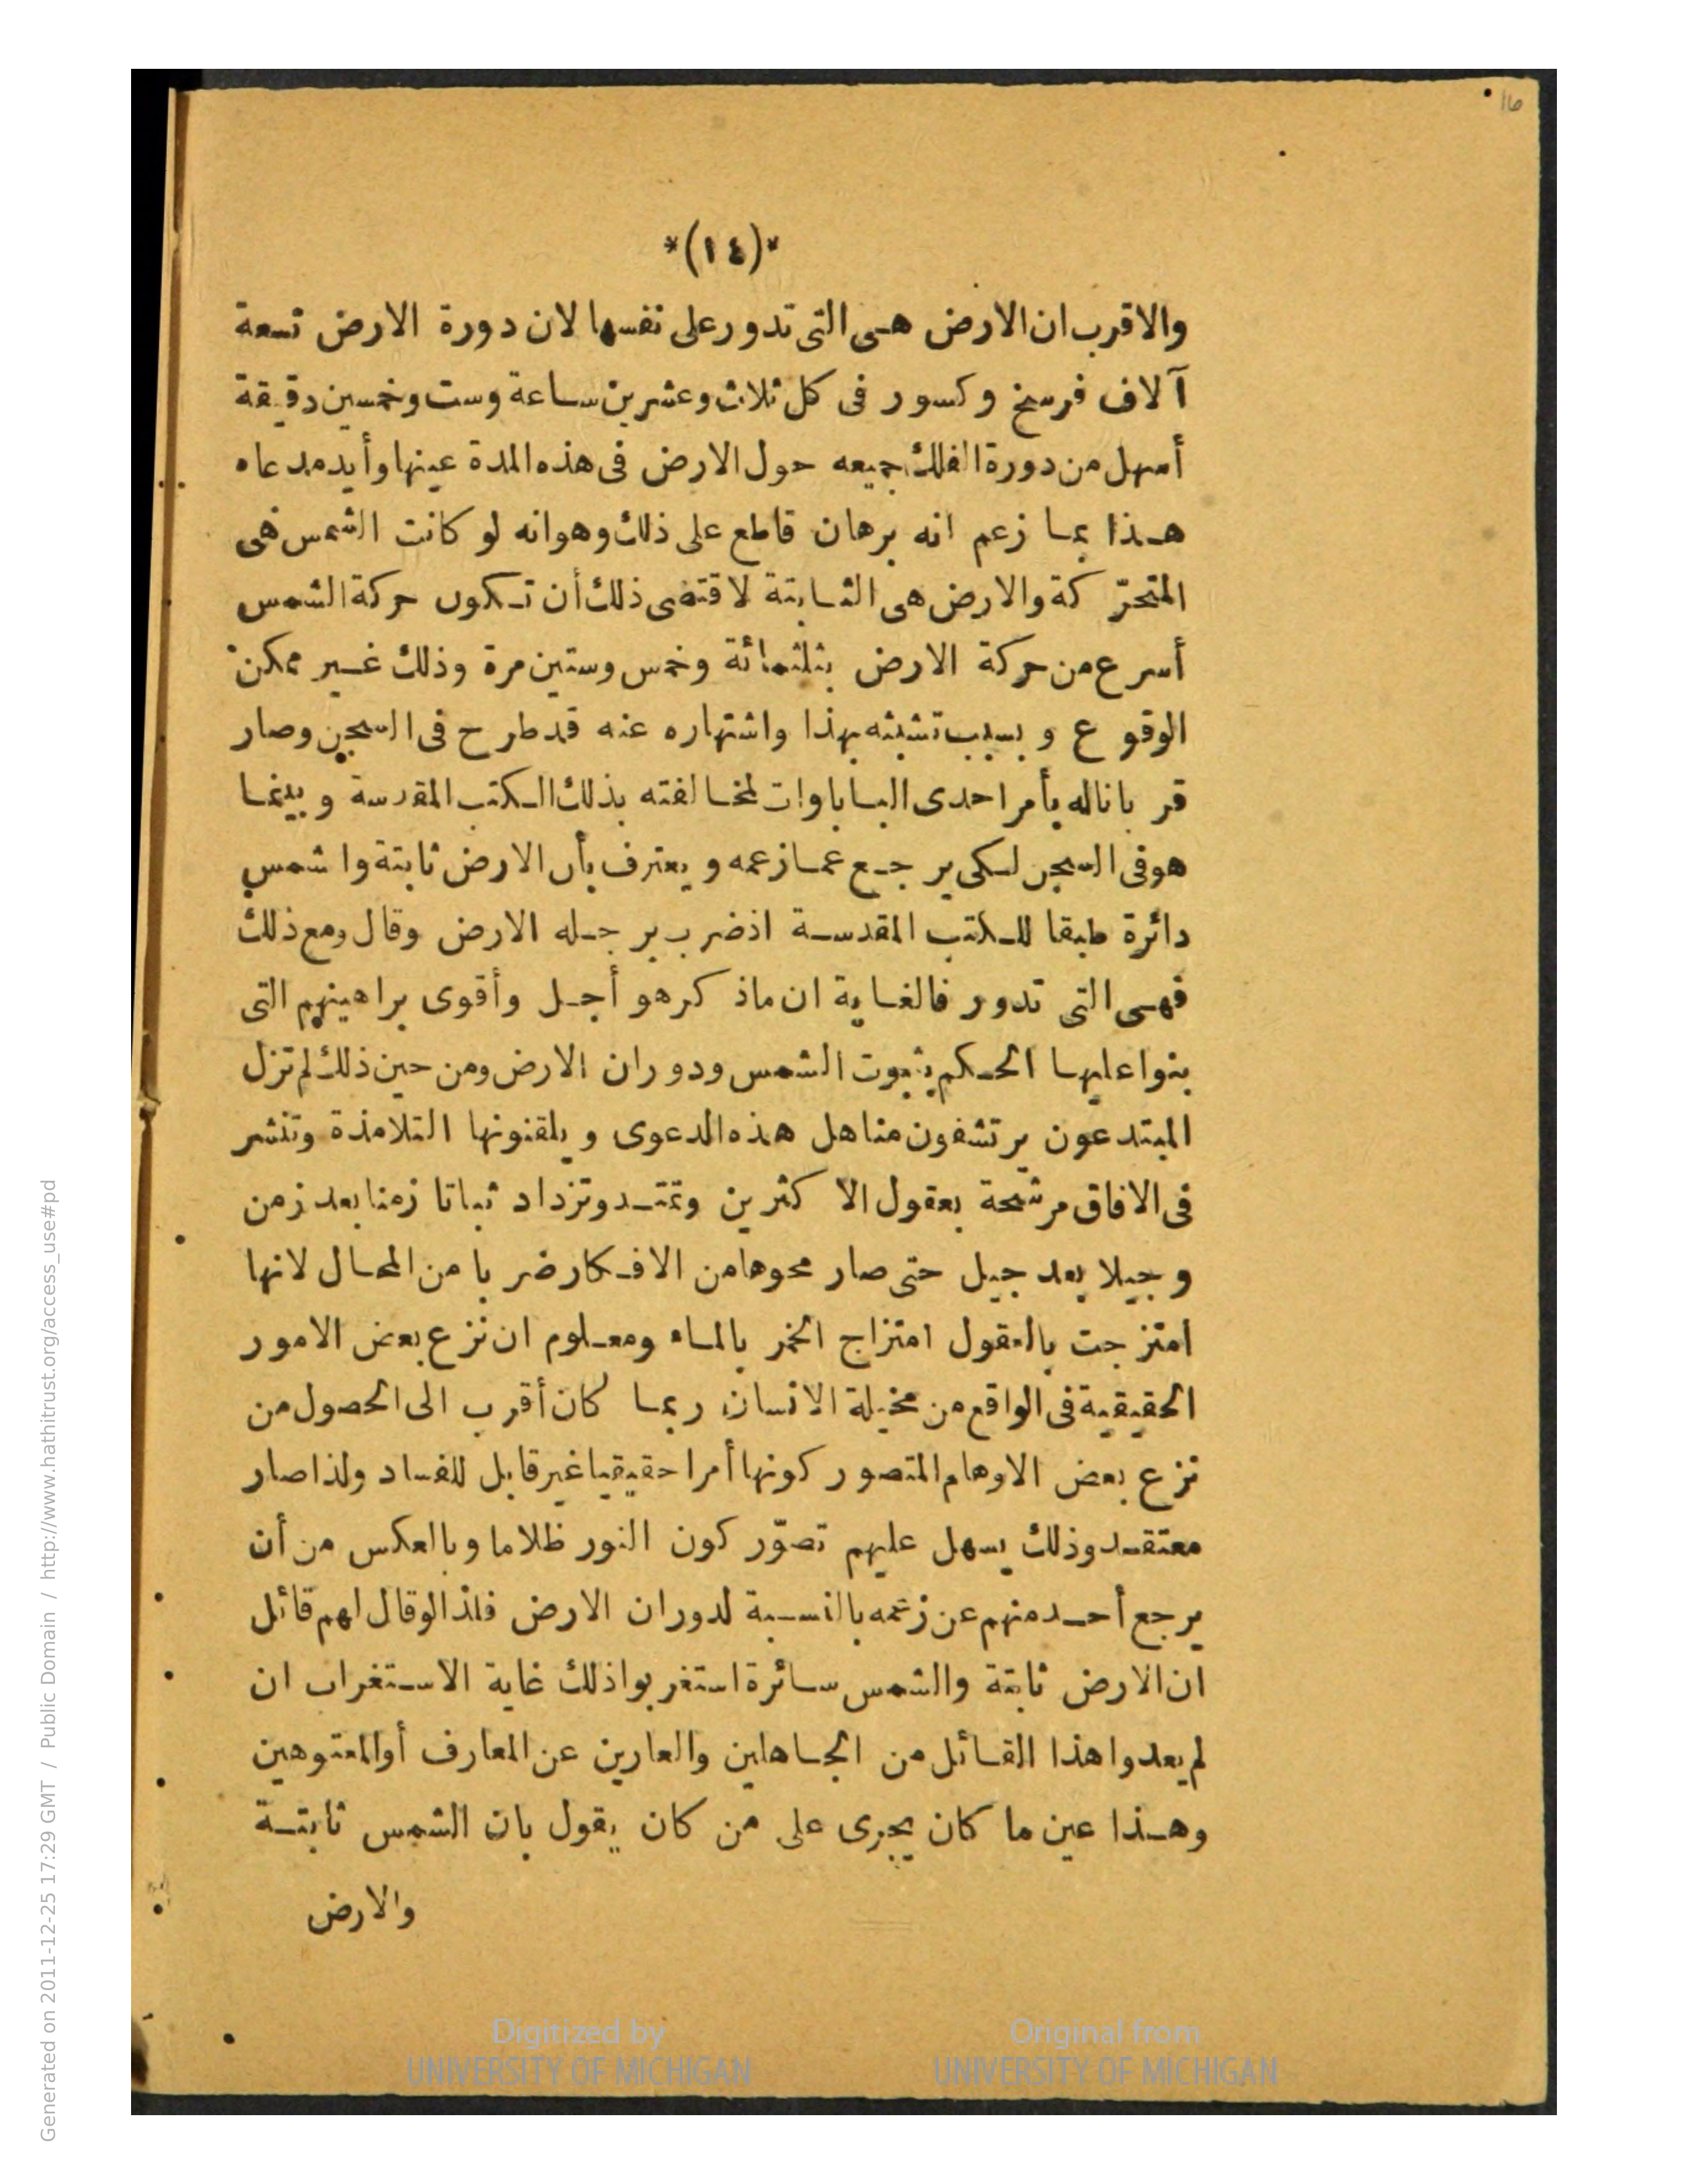 16
*(١٤)*
والاقرب ان الارض هى التى تدور على نفسها لان دورة الارض تسعة
آلاف فرسخ وكسور فى كل ثلاث وعشرين ساعة وست وخمسين دقيقة
أسهل من دورة الفلك جميعه حول الارض فى هذه المدة عينها وأيد مدعاه
هذا بما زعم انه برهان قاطع على ذلك وهو انه لو كانت الشمس هى
المتحرّكة والارض هى الثابتة لاقتضى ذلك أن تكون حركة الشمس
أسرع من حركة الارض بثلثمائة وخمس وستين مرة وذلك غير ممكن
الوقوع و بسبب تشبثه بهذا واشتهاره عنه قد طرح فى السجين وصار
قربانا له بأمر احدى الباباوات لمخالفته بذلك الكتب المقدسة و بينما
هو فى السجن لكى يرجع عما زعمه و يعترف بأن الارض ثابتة وا شمس
دائرة طبقا للكتب المقدسة اذ ضرب برجله الارض وقال ومع ذلك
فهى التى تدور فالغاية ان ماذ كرهو أجل وأقوى براهينهم التى
بنوا عليها الحكم بثبوت الشمس ودوران الارض ومن حين ذلك لم تزل
المبتدعون يرتشفون مناهل هذه الدعوى و يلقنونها التلامذة وتنشر
فى الافاق مرشحة بعقول الاكثرين وتمتد وتزداد ثباتا زمنا بعد زمن
و جيلا بعد جيل حتى صار محوها من الافكار ضربا من المحال لانها
امتزجت بالعقول امتزاج الخمر بالماء ومعلوم ان نزع بعض الامور
الحقيقية فى الواقع من مخيلة الانسان ربما كان أقرب الى الحصول من
نزع بعض الاوهام المتصور كونها أمرا حقيقيا غير قابل للفساد ولذا صار
معتقدو ذلك يسهل عليهم تصوّر كون النور ظلاما وبالعكس من أن
يرجع أحد منهم عن زعمه بالنسبة لدوران الارض فلذا لو قال لهم قائل
ان الارض ثابتة والشمس سائرة استغربوا ذلك غاية الاستغراب ان
لم يعدوا هذا القائل من الجاهلين والعارين عن المعارف أوالمعتوهين
وهذا عين ما كان يجرى على من كان يقول بان الشمس ثابتة
والارض
Digitized by
UNIVERSITY OF MICHIGAN
Original from
UNIVERSITY OF MICHIGAN
Generated on 2011-12-25 17:29 GMT / http://www.hathitrust.org/access_use#pd / Public Domain